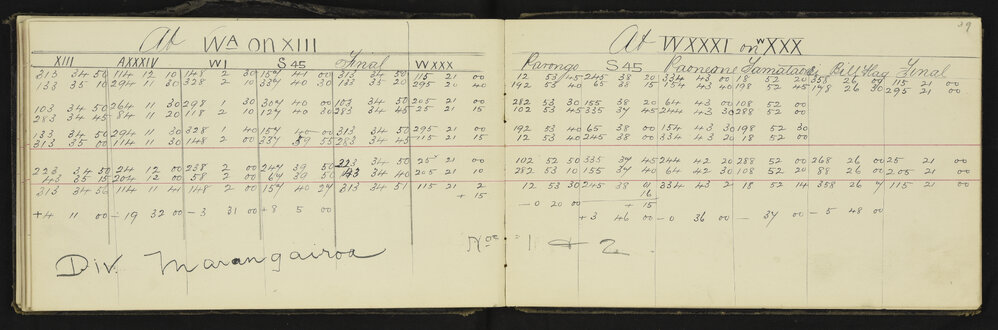 At WA on XIII
XIII AXXXIV WI S 45 Final WXXX
313 34 50 114 12 10 148 2 30 154 41 00 313 34 50 115 21 00
133 35 10 294 11 30 328 2 10 334 40 30 133 34 20 295 20 40
103 34 50 264 11 30 298 1 30 304 40 00 103 34 50 205 21 00
283 34 45 84 11 20 118 2 10 124 40 30 283 34 45 25 21 15
133 34 50 294 11 30 328 1 40 154 40 00 313 34 50 295 21 00
313 35 00 114 11 30 148 2 00 334 39 55 283 34 45 115 21 15
223 34 50 24 12 00 238 2 00 244 39 50 223 34 50 25 21 00
43 35 15 204 12 00 58 2 00 64 39 50 43 34 40 205 21 10
313 34 56 114 11 41 148 2 00 154 40 24 313 34 51 115 21 2
+ 15
+4 11 00 -19 32 00 -3 31 00 +8 5 00
Div. Marangairoa
39
At WXXXI on WXXX
Parongo S 45 Paoneone Tamatai Bill Hag Final
12 53 45 245 38 20 334 43 00 18 52 20 358 26 00 115 21 00
192 53 40 65 38 15 154 43 40 198 52 45 178 26 30 295 21 00
282 53 30 155 38 20 64 43 00 108 52 00
102 53 45 335 37 45 244 43 30 288 52 00
192 53 40 65 38 00 154 43 30 198 52 30
12 53 40 245 38 00 334 43 20 18 52 00
102 52 50 335 37 45 244 42 20 288 52 00 268 26 00 25 21 00
282 53 10 155 37 30 64 42 30 108 52 20 88 26 00 205 21 00
12 53 30 245 38 01 334 43 2 18 52 14 358 26 7 115 21 00
16
-0 20 00 + 15
+3 46 00 -0 36 00 - 37 00 -5 48 00
Nos 1 & 2